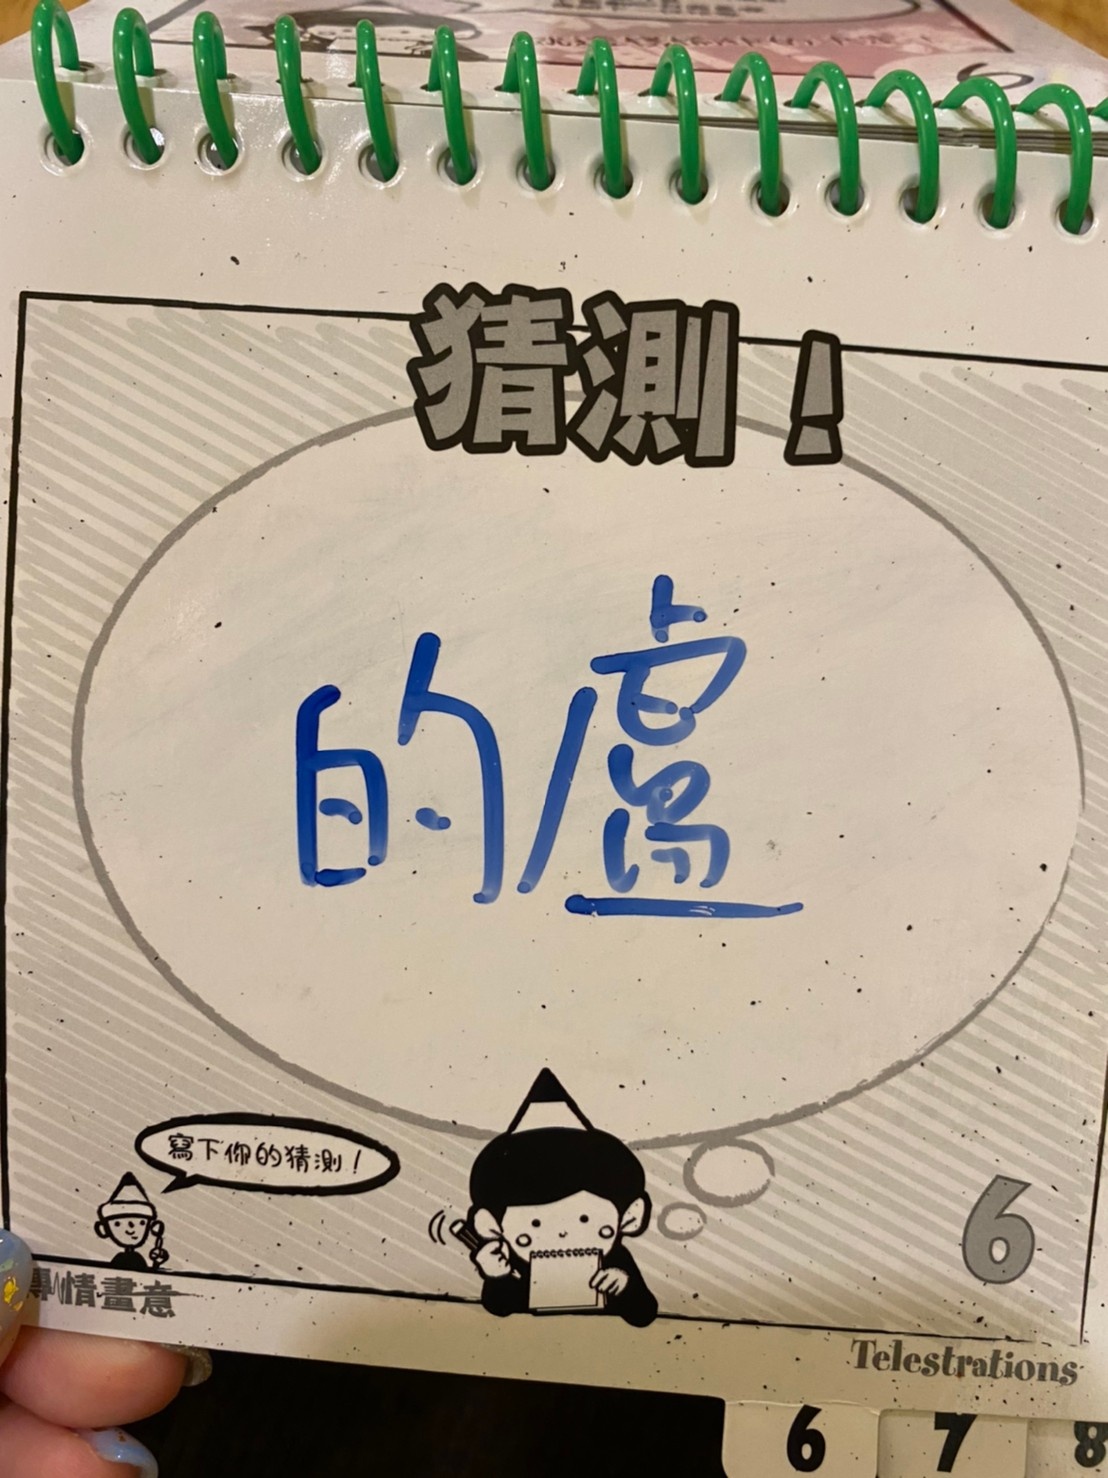 猜測！
的盧
寫下你的猜測！
6
傳情畫意
Telestrations
6 7 8